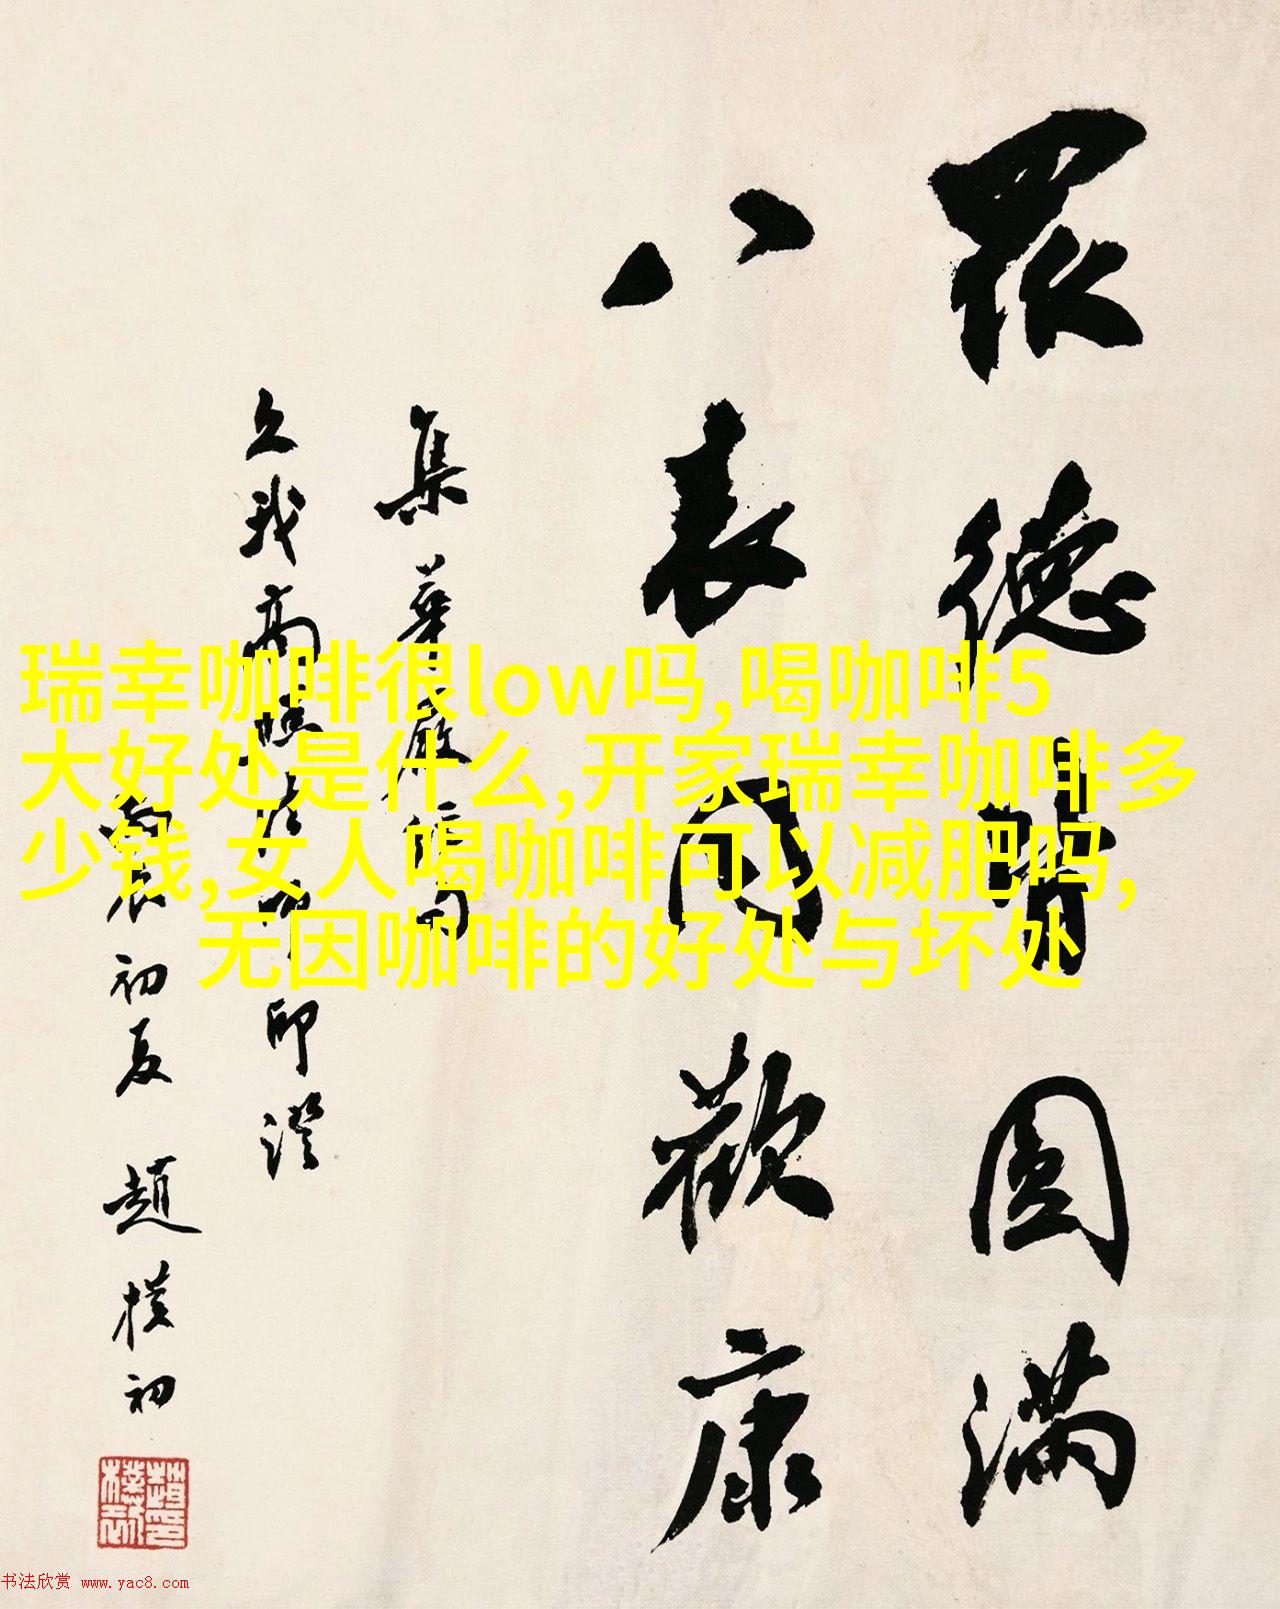 眾德皆圓滿
八表同歡康
集華嚴偈句
久我高照法師印證
辰初夏 趙樸初
瑞幸咖啡很low吗,喝咖啡5
大好处是什么,开家瑞幸咖啡多
少钱,女人喝咖啡可以减肥吗,
无因咖啡的好处与坏处
书法欣赏 www.yac8.com